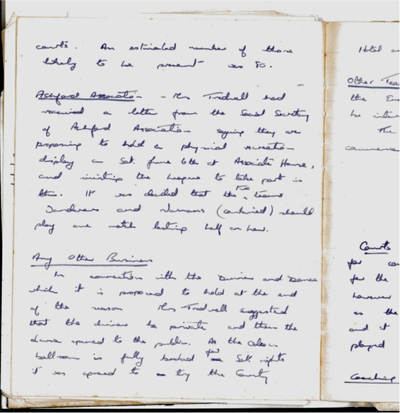 courts. An estimated number of those
likely to be present was 80.
Ashford Associates - Mrs Tidwell had
received a letter from the Social Secretary
of Ashford Associates saying they are
proposing to hold a physical recreation
display on Sat. June 6th at Associate House,
and inviting the League to take part in
this. It was decided that the two teams
and (combined) should
play one match lasting half an hour.
Any Other Business
In connection with the Dinner and Dance
which it is proposed to hold at the end
of the season Mrs Tidwell suggested
that the dinner be private and then the
dance opened to the public. As the
ballroom is fully booked for Sat nights
it was agreed to try the County
Hotel
Other
the
he
The
Courts
for
for the
however
as the
and it
played
Coaching